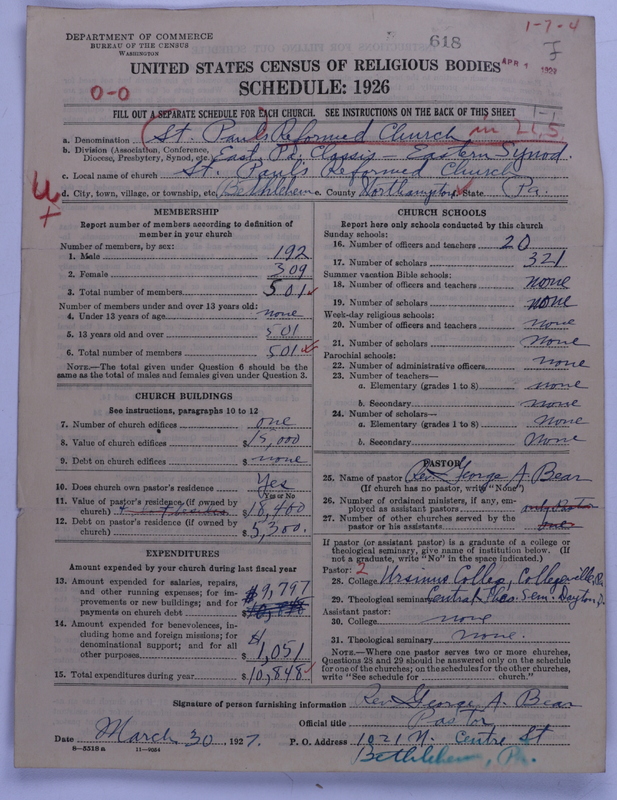 1-7-4
DEPARTMENT OF COMMERCE
BUREAU OF THE CENSUS
WASHINGTON
618
UNITED STATES CENSUS OF RELIGIOUS BODIES
APR 1
SCHEDULE: 1926
0-0
1-1
FILL OUT A SEPARATE SCHEDULE FOR EACH CHURCH. SEE INSTRUCTIONS ON THE BACK OF THIS SHEET
a. Denomination St. Paul's Reformed Church in U.S.
b. Division (Association, Conference, Diocese, Presbytery, Synod, etc.) East Pa. Classis - Eastern Synod.
c. Local name of church St. Paul's Reformed Church
d. City, town, village, or township, etc. Bethlehem e. County Northampton State Pa.
MEMBERSHIP
Report number of members according to definition of
member in your church
Number of members, by sex:
1. Male 192
2. Female 309
3. Total number of members 501
Number of members under and over 13 years old:
4. Under 13 years of age none
5. 13 years old and over 501
6. Total number of members 501
NOTE.—The total given under Question 6 should be the
same as the total of males and females given under Question 3.
CHURCH BUILDINGS
See instructions, paragraphs 10 to 12
7. Number of church edifices one
8. Value of church edifices $15,000
9. Debt on church edifices $ none
10. Does church own pastor's residence Yes
Yes or No
11. Value of pastor's residence (if owned by
church) $18,400
12. Debt on pastor's residence (if owned by
church) $5,300.
EXPENDITURES
Amount expended by your church during last fiscal year
13. Amount expended for salaries, repairs,
and other running expenses; for im-
provements or new buildings; and for
payments on church debt $9,797
14. Amount expended for benevolences, in-
cluding home and foreign missions; for
denominational support; and for all
other purposes $1,051
15. Total expenditures during year $10,848
CHURCH SCHOOLS
Report here only schools conducted by this church
Sunday schools:
16. Number of officers and teachers 20
17. Number of scholars 321
Summer vacation Bible schools:
18. Number of officers and teachers none
19. Number of scholars none
Week-day religious schools:
20. Number of officers and teachers none
21. Number of scholars none
Parochial schools:
22. Number of administrative officers none
23. Number of teachers—
a. Elementary (grades 1 to 8) none
b. Secondary none
24. Number of scholars—
a. Elementary (grades 1 to 8) none
b. Secondary none
PASTOR
25. Name of pastor Rev. George A. Bear
(If church has no pastor, write "None")
26. Number of ordained ministers, if any, em-
ployed as assistant pastors only Pastor
27. Number of other churches served by the
pastor or his assistants
If pastor (or assistant pastor) is a graduate of a college or
theological seminary, give name of institution below. (If
not a graduate, write "No" in the space indicated.)
Pastor: 2
28. College Ursinus College, Collegeville, Pa.
29. Theological seminary Central Theo. Sem. Dayton, O.
Assistant pastor:
30. College none
31. Theological seminary none.
NOTE.—Where one pastor serves two or more churches,
Questions 28 and 29 should be answered only on the schedule
for one of the churches; on the schedules for the other churches,
write "See schedule for church."
Signature of person furnishing information Rev. George A. Bear
Official title Pastor
Date March 30, 1927. P. O. Address 1021 N. Centre St
8—5318 a 11—9034 Bethlehem, Pa.